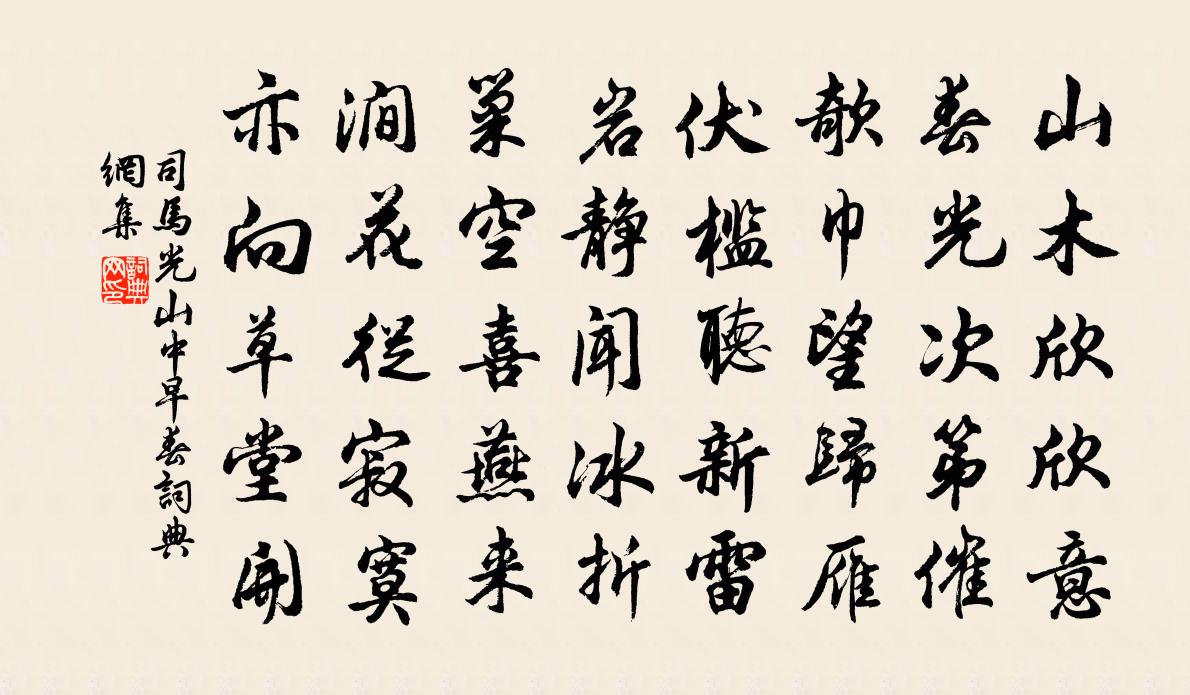 山木欣欣意
春光次第催
欹巾望歸雁
伏檻聽新雷
岩靜聞冰折
巢空喜燕来
澗花從寂寞
亦向草堂開
司馬光山中早春詞典
網集
詞典
网印